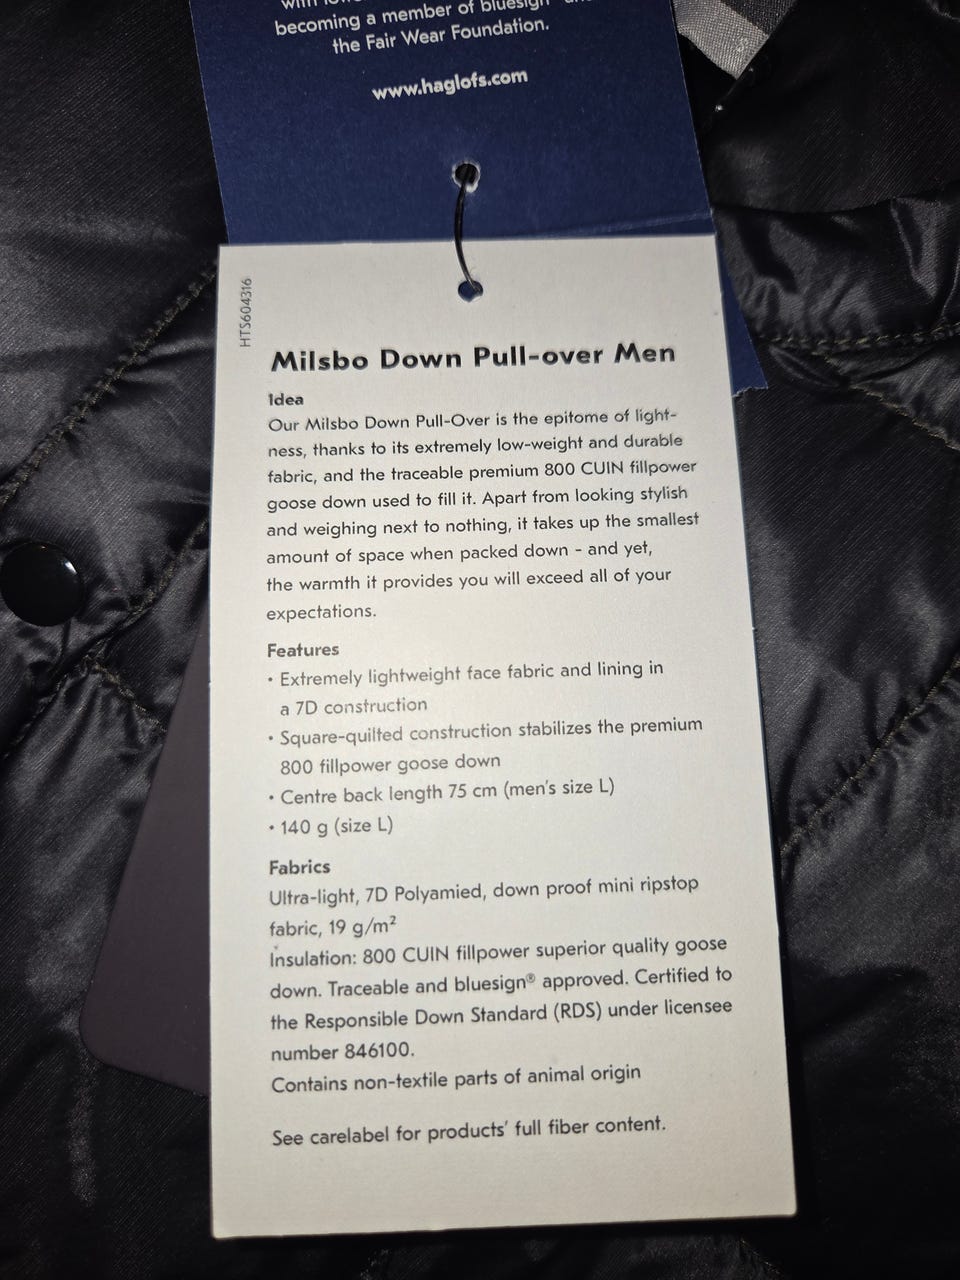 becoming a member of bluesign®
the Fair Wear Foundation.
www.haglofs.com
HTS604316
Milsbo Down Pull-over Men
Idea
Our Milsbo Down Pull-Over is the epitome of light-
ness, thanks to its extremely low-weight and durable
fabric, and the traceable premium 800 CUIN fillpower
goose down used to fill it. Apart from looking stylish
and weighing next to nothing, it takes up the smallest
amount of space when packed down - and yet,
the warmth it provides you will exceed all of your
expectations.
Features
• Extremely lightweight face fabric and lining in
a 7D construction
• Square-quilted construction stabilizes the premium
800 fillpower goose down
• Centre back length 75 cm (men's size L)
• 140 g (size L)
Fabrics
Ultra-light, 7D Polyamied, down proof mini ripstop
fabric, 19 g/m²
Insulation: 800 CUIN fillpower superior quality goose
down. Traceable and bluesign® approved. Certified to
the Responsible Down Standard (RDS) under licensee
number 846100.
Contains non-textile parts of animal origin
See carelabel for products' full fiber content.